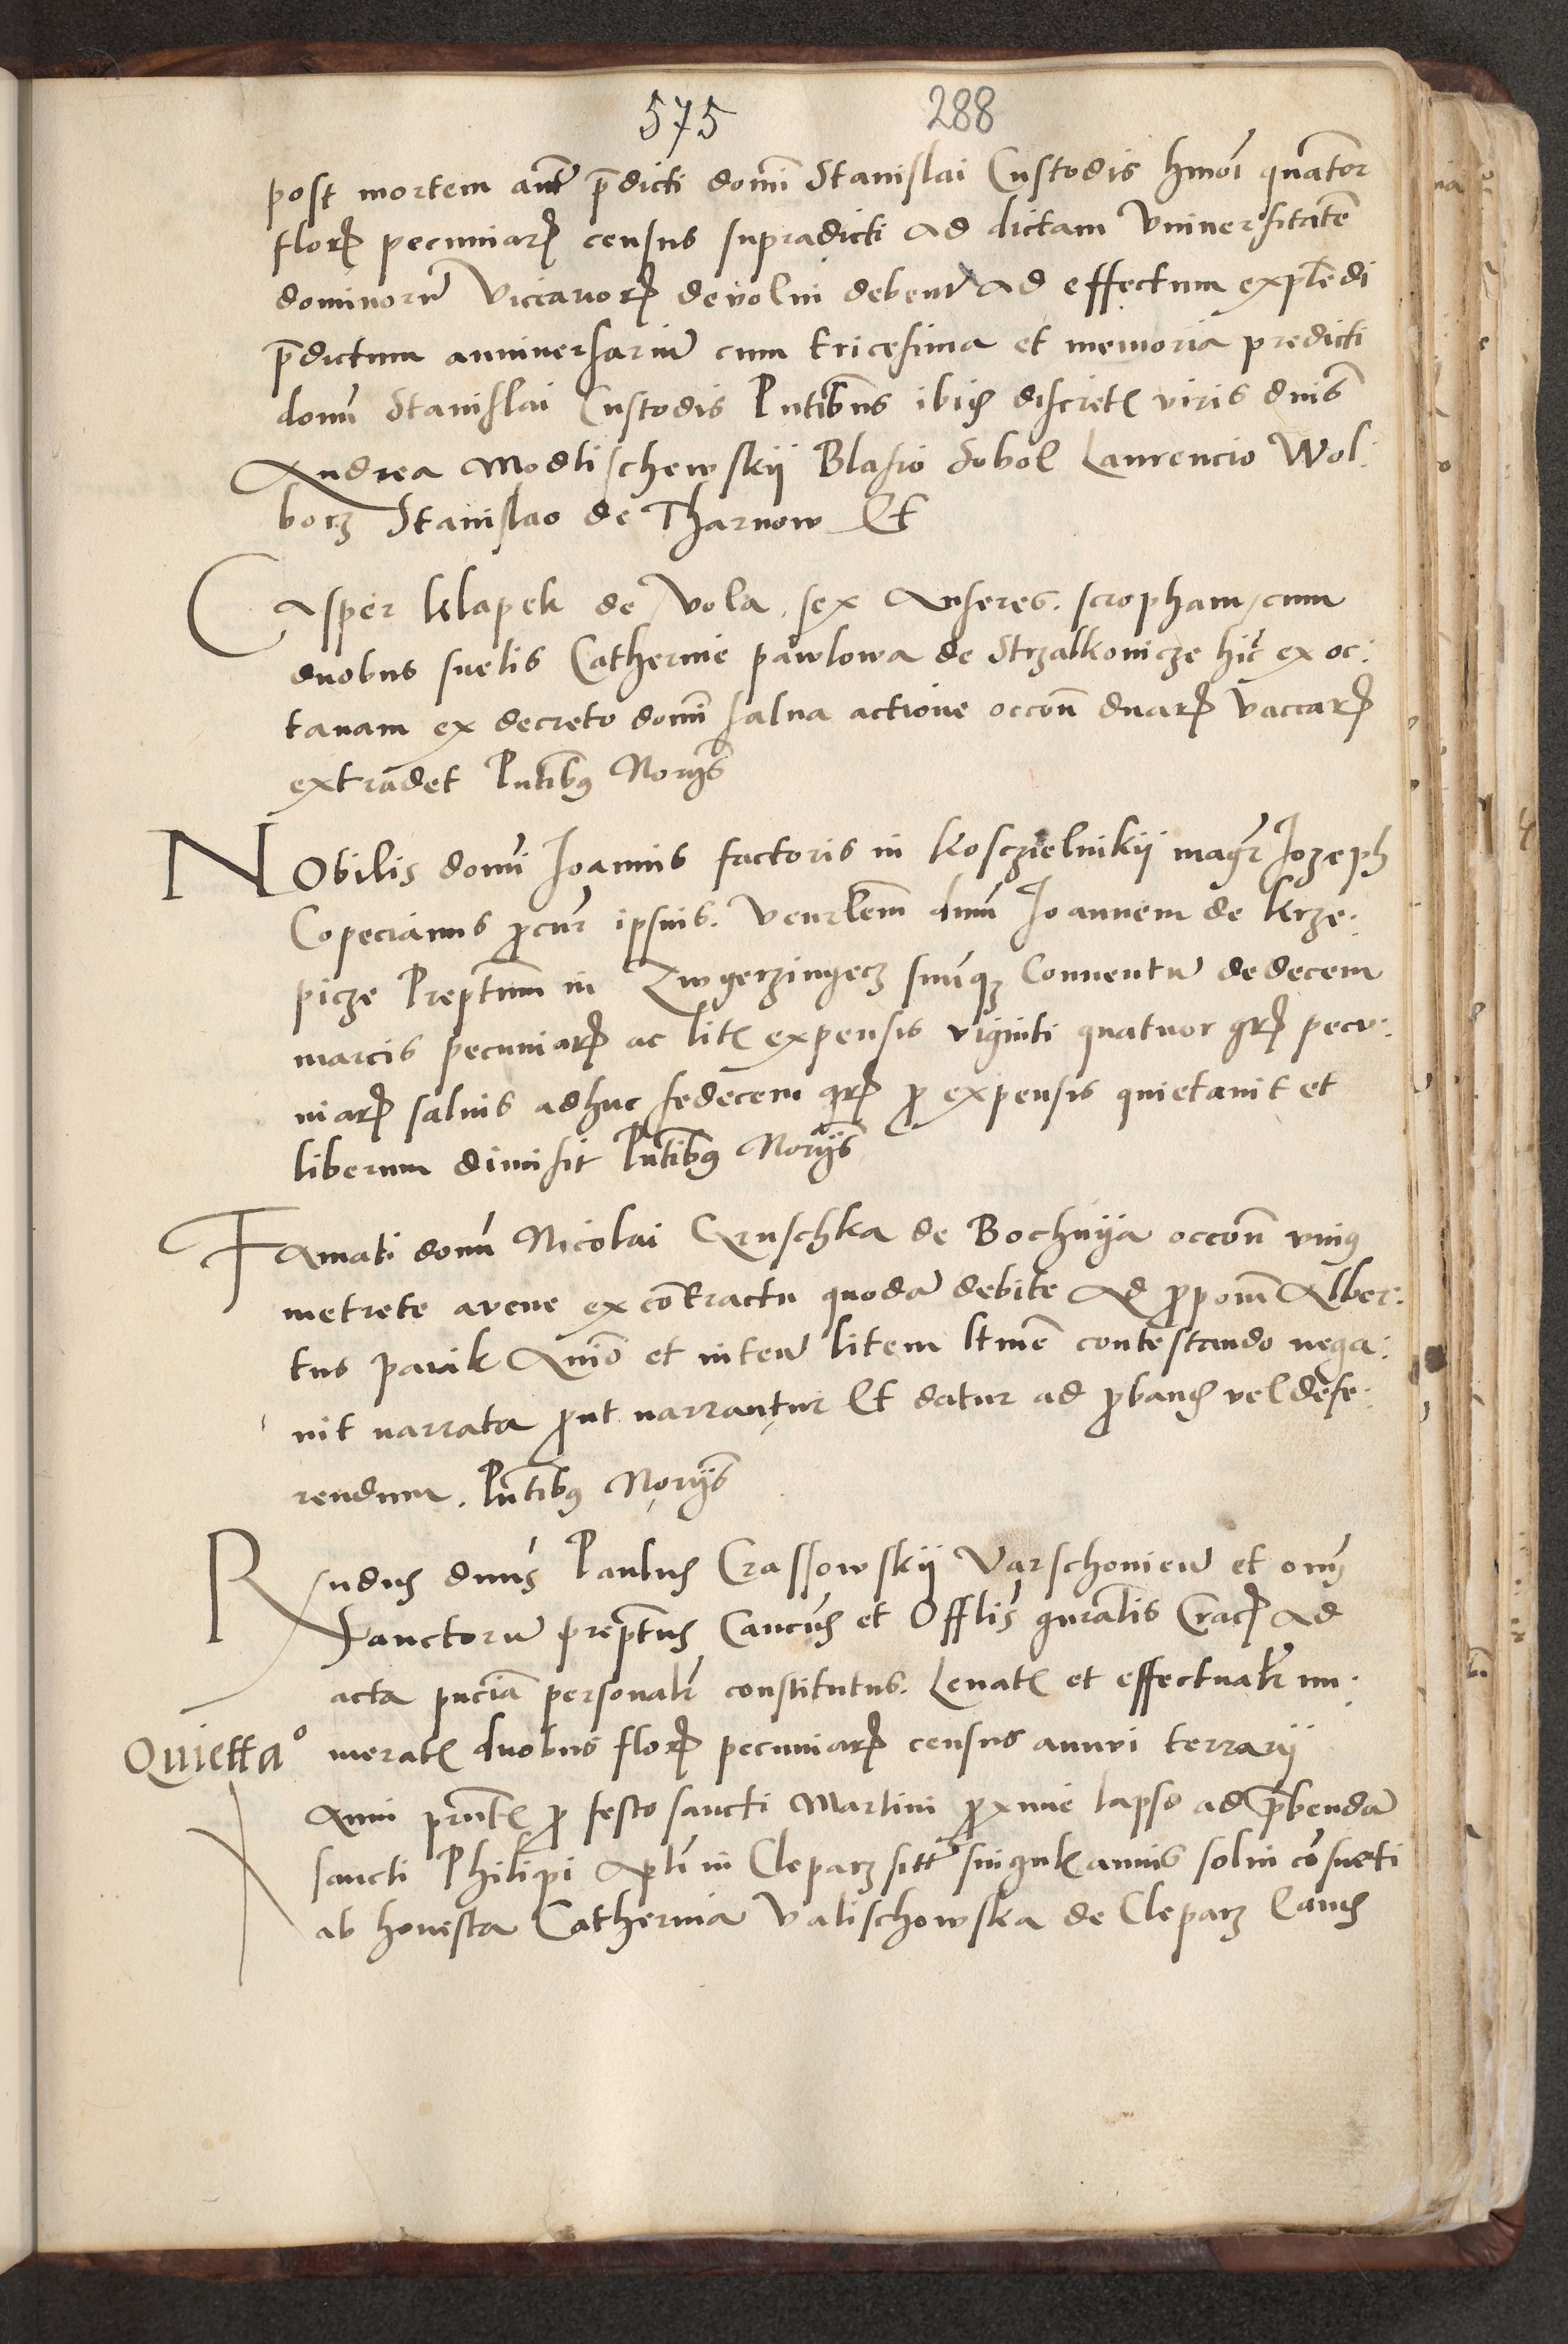 575
288
post mortem ante p̄dicti domi Stanislai Custodis hmōi quatuor
floꝝ pecuniaꝝ census supradicti ad dictam Vniuersitatē
dominorū Viccarioꝝ deuolui debent ad effectum explēdi
p̄dictum anniuersariū cum tricesima et memoria predicti
domī Stanislai Custodis Pntibus ibidē discretꝭ viris dnis
Andrea Modlischewskij Blasio Sobol Laurencio Wol:
borz Stanislao de Tharnow &t
Casper klapek de Vola sex anseres. scropham cum
duobus suelis Catherine pawlowa de Strzalkonicze hic ex oc:
tauam ex decreto domī salua actione occoñ duaꝝ vaccaꝝ
extradet Pntibꝰ Norijs
Nobilis domi Ioannis factoris in kosczielnikij magr̄ Iozeph
Copecianus ꝓcur̄ ipsius. venrlem dnum Ioannem de krze:
picze Preptum in Zwyerzinyecz suūqꝫ Conuentū de decem
marcis pecuniaꝝ ac litꝭ expensis viginti quatuor gꝝ pecu:
niaꝝ saluis adhuc sedecem gꝝ ꝓ expensis quietauit et
liberum dimisit Pntibꝰ Norijs
Famati domi Nicolai Gruschka de Bochnija occoñ vniꝰ
metrete avene ex contractu quodā debite ad ꝓpom̄ Alber:
tus pawik Anīo et inten̄ litem ltime contestando nega:
uit narrata ꝓut narrantur &t datur ad ꝓband vel defe:
rendum. Pntibꝰ Norijs
Rndus dnus Paulus Crassowskij Varschouien̄ et om̄
Sanctorū preptus Cancus et Offlis gnralis Cracꝝ ad
acta pnciā personalr̄ constitutus. Leuatꝭ et effectualr̄ nu:
Quietta°
meratꝭ duobus floꝝ pecuniaꝝ census annui terrarij
Anni pnt̄ꝭ ꝓ festo sancti Martini ꝓxime lapso ad p̄bendā
sancti Philipi Apli in Cleparz sitt singulꝭ annis solui cōsueti
ab honesta Catherina Valischowska de Cleparz